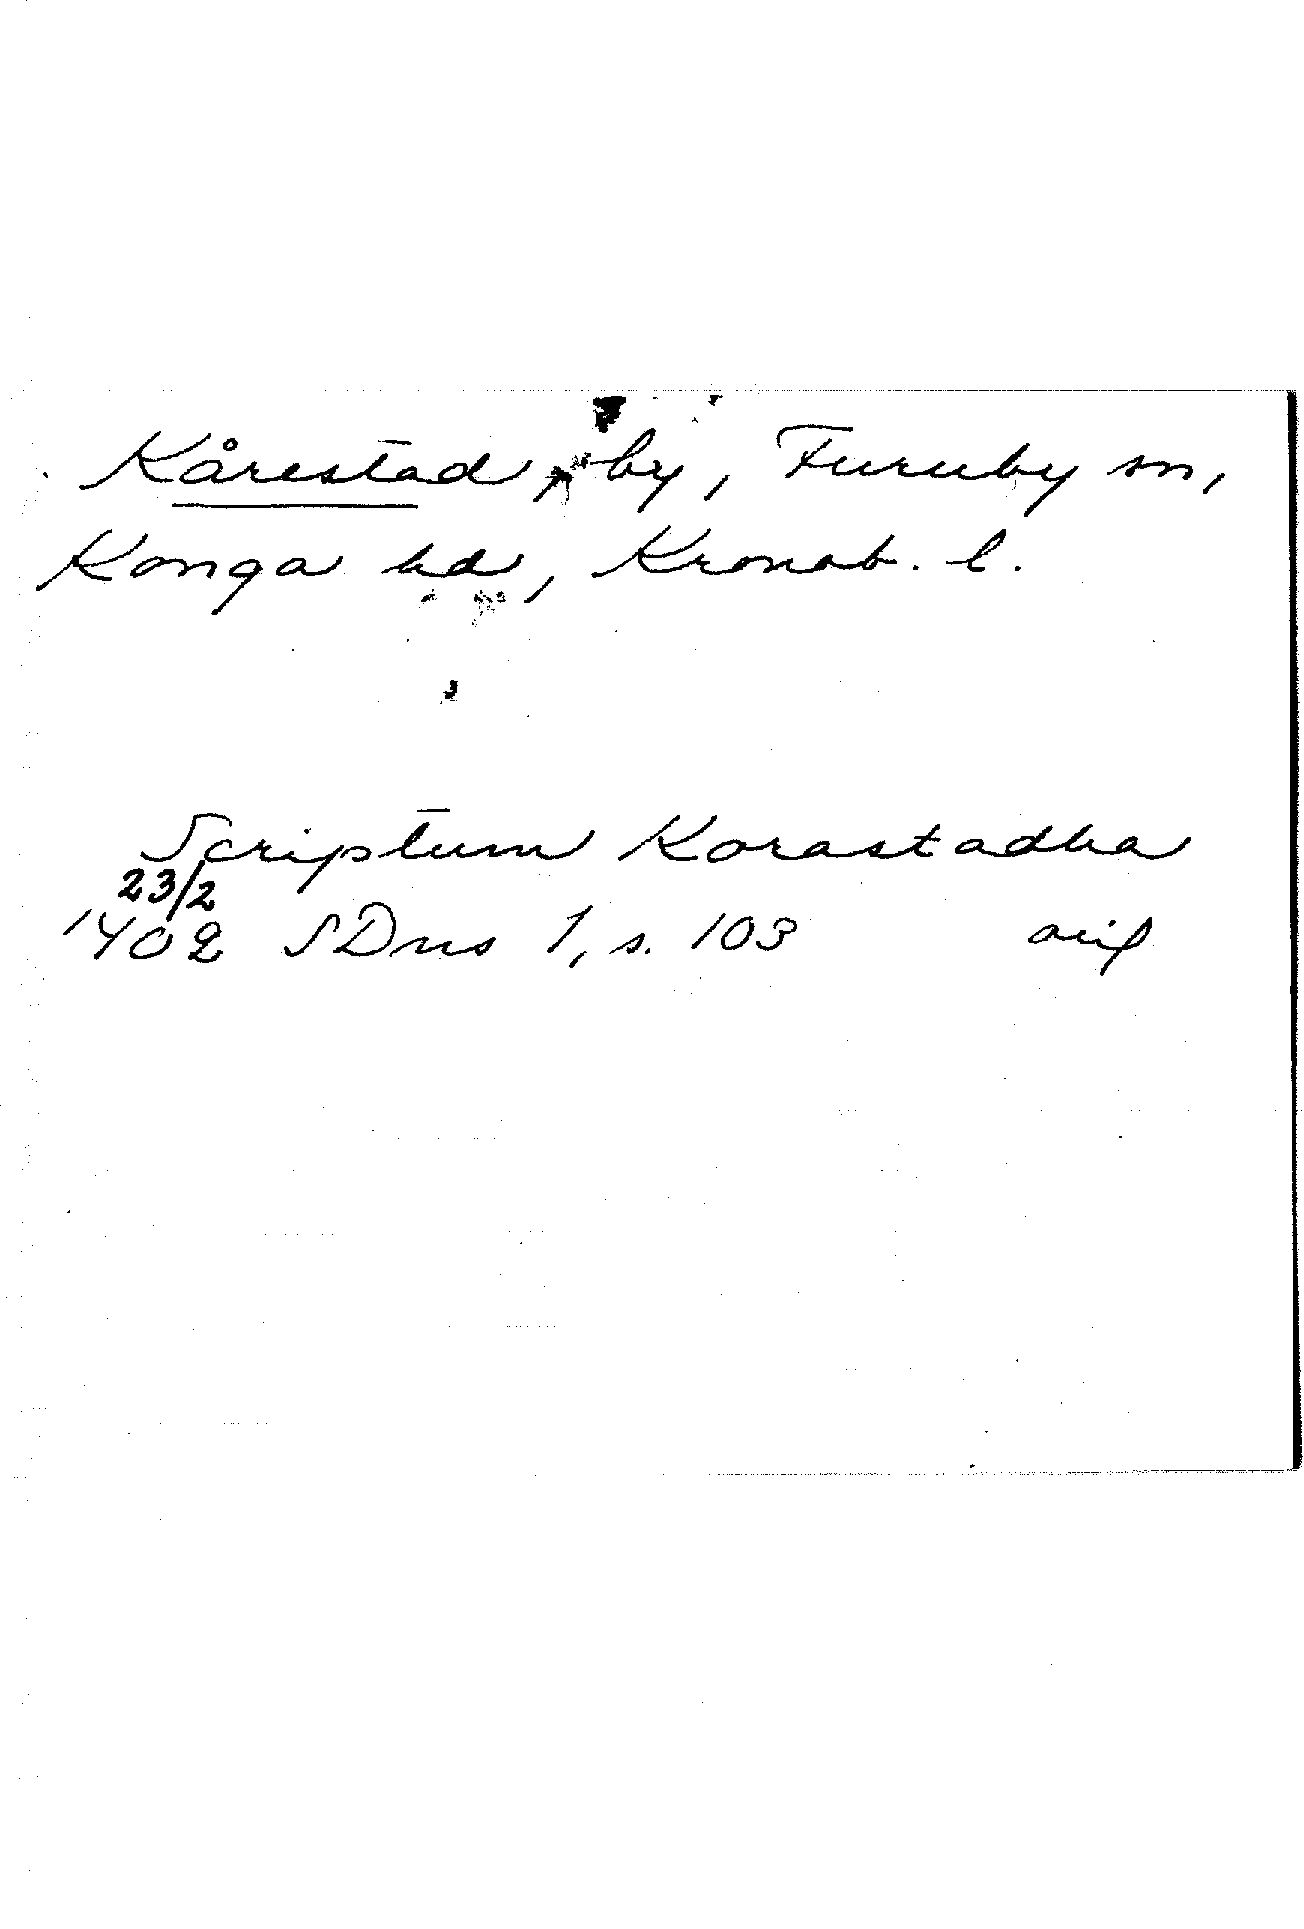 Kårestad, by, Furuby sn,
Konga hd, Kronob. l.
Scriptum Korastadha
23/2
1402 SDns 1, s. 103 orig